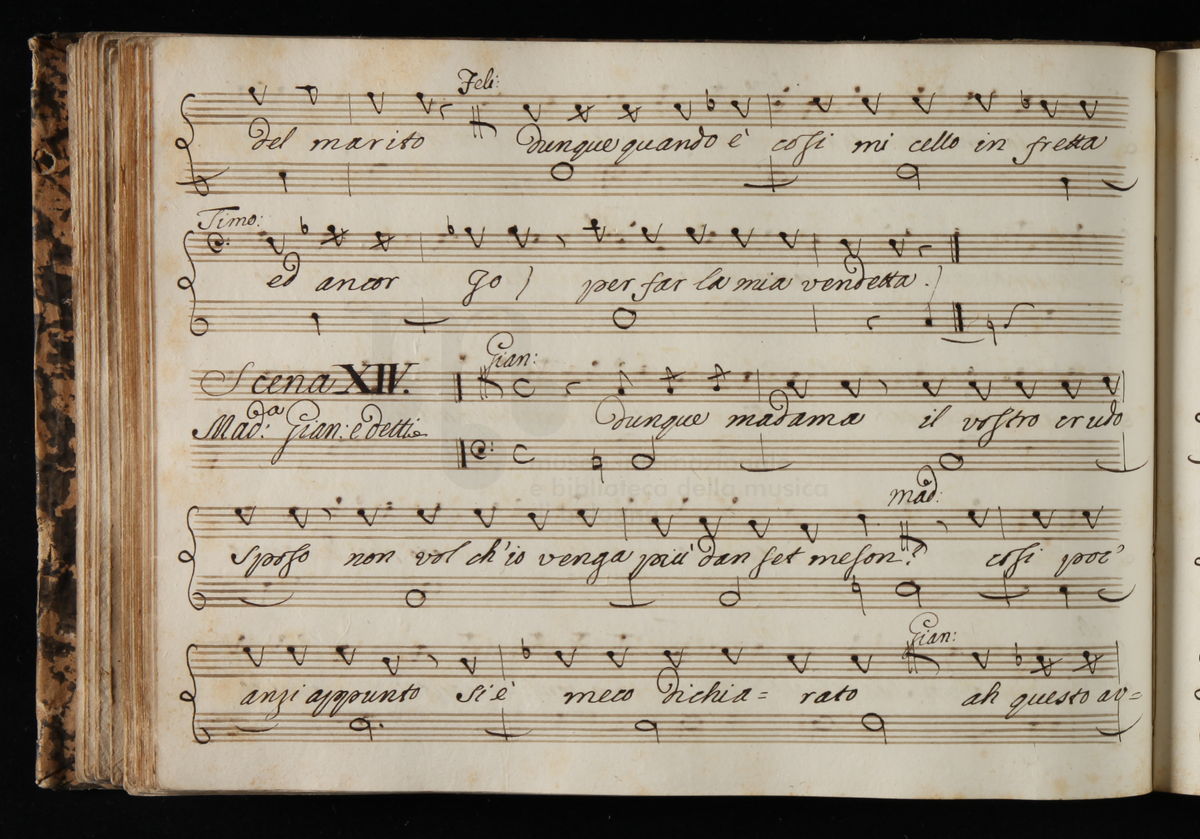 Feli:
del marito dunque quando è cosi mi cello in fretta
Timo:
ed ancor Jo ) per far la mia vendetta. )
Scena XIV. Gian:
Mad.a Gian: e detti dunque madama il vostro crudo
Mad:
sposo non vol ch'io venga più dan set meson? cosi poc'
Gian:
anzi appunto si è meco dichia= rato ah questo av=
museo
e biblioteca della musica